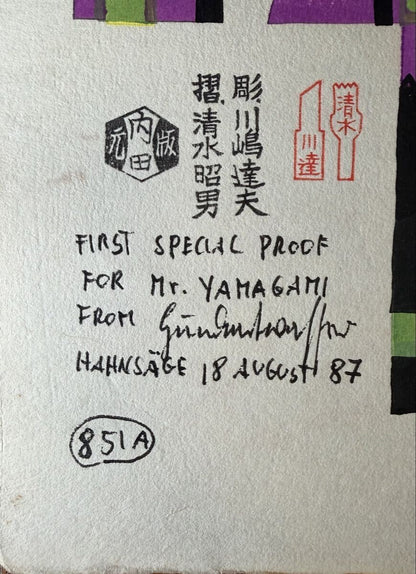 彫、川嶋達夫
摺、清水昭男
版元
内田
清水
川達
FIRST SPECIAL PROOF
FOR Mr. YAMAGAMI
FROM Hundertwasser
HAHNSÄGE 18 AUGUST 87
851A